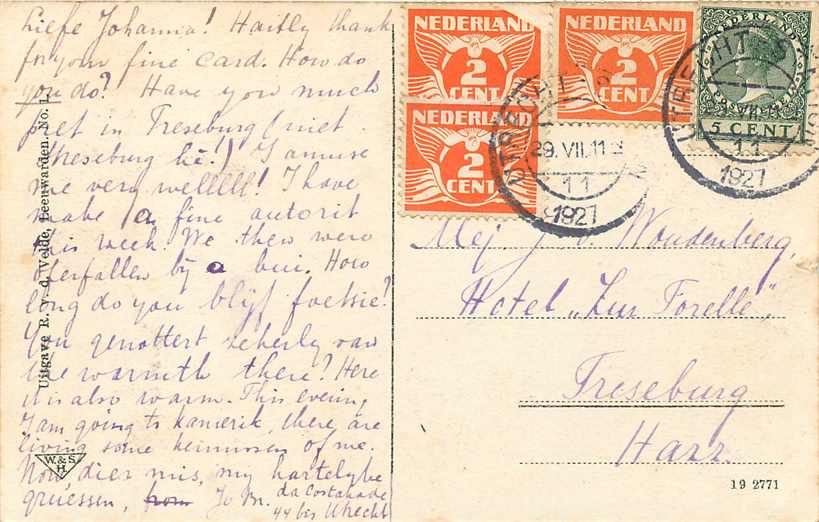 Liefe Johanna! Hastly thank
for your fine card. How do
you do? Have you much
pret in Treseburg (niet
Vreseburg hè!) I amuse
me very wellll! I have
make a fine autorit
this week. We then were
overfallen by a bui. How
long do you blijf foetsie?
You genottert scherly van
the warmth there? Here
it is also warm. This evening
I am going to Kamerik, there, are
living some kennissen of me.
Now, dier mis, my hartelyke
gruessen, from Jo M. da Costakade
44 bis Utrecht
Uitgave R. v. d. Velde, Leeuwarden. No. 1.
W. & S.
H.
NEDERLAND
2
CENT
NEDERLAND
2
CENT
NEDERLAND
2
CENT
NEDERLAND
5 CENT
UTRECHT
29.VII.11
11
1927
UTRECHT
VII.11
11
1927
Mej. J. v. Woudenberg,
Hotel „Zur Forelle"
Treseburg
Harz.
19 2771